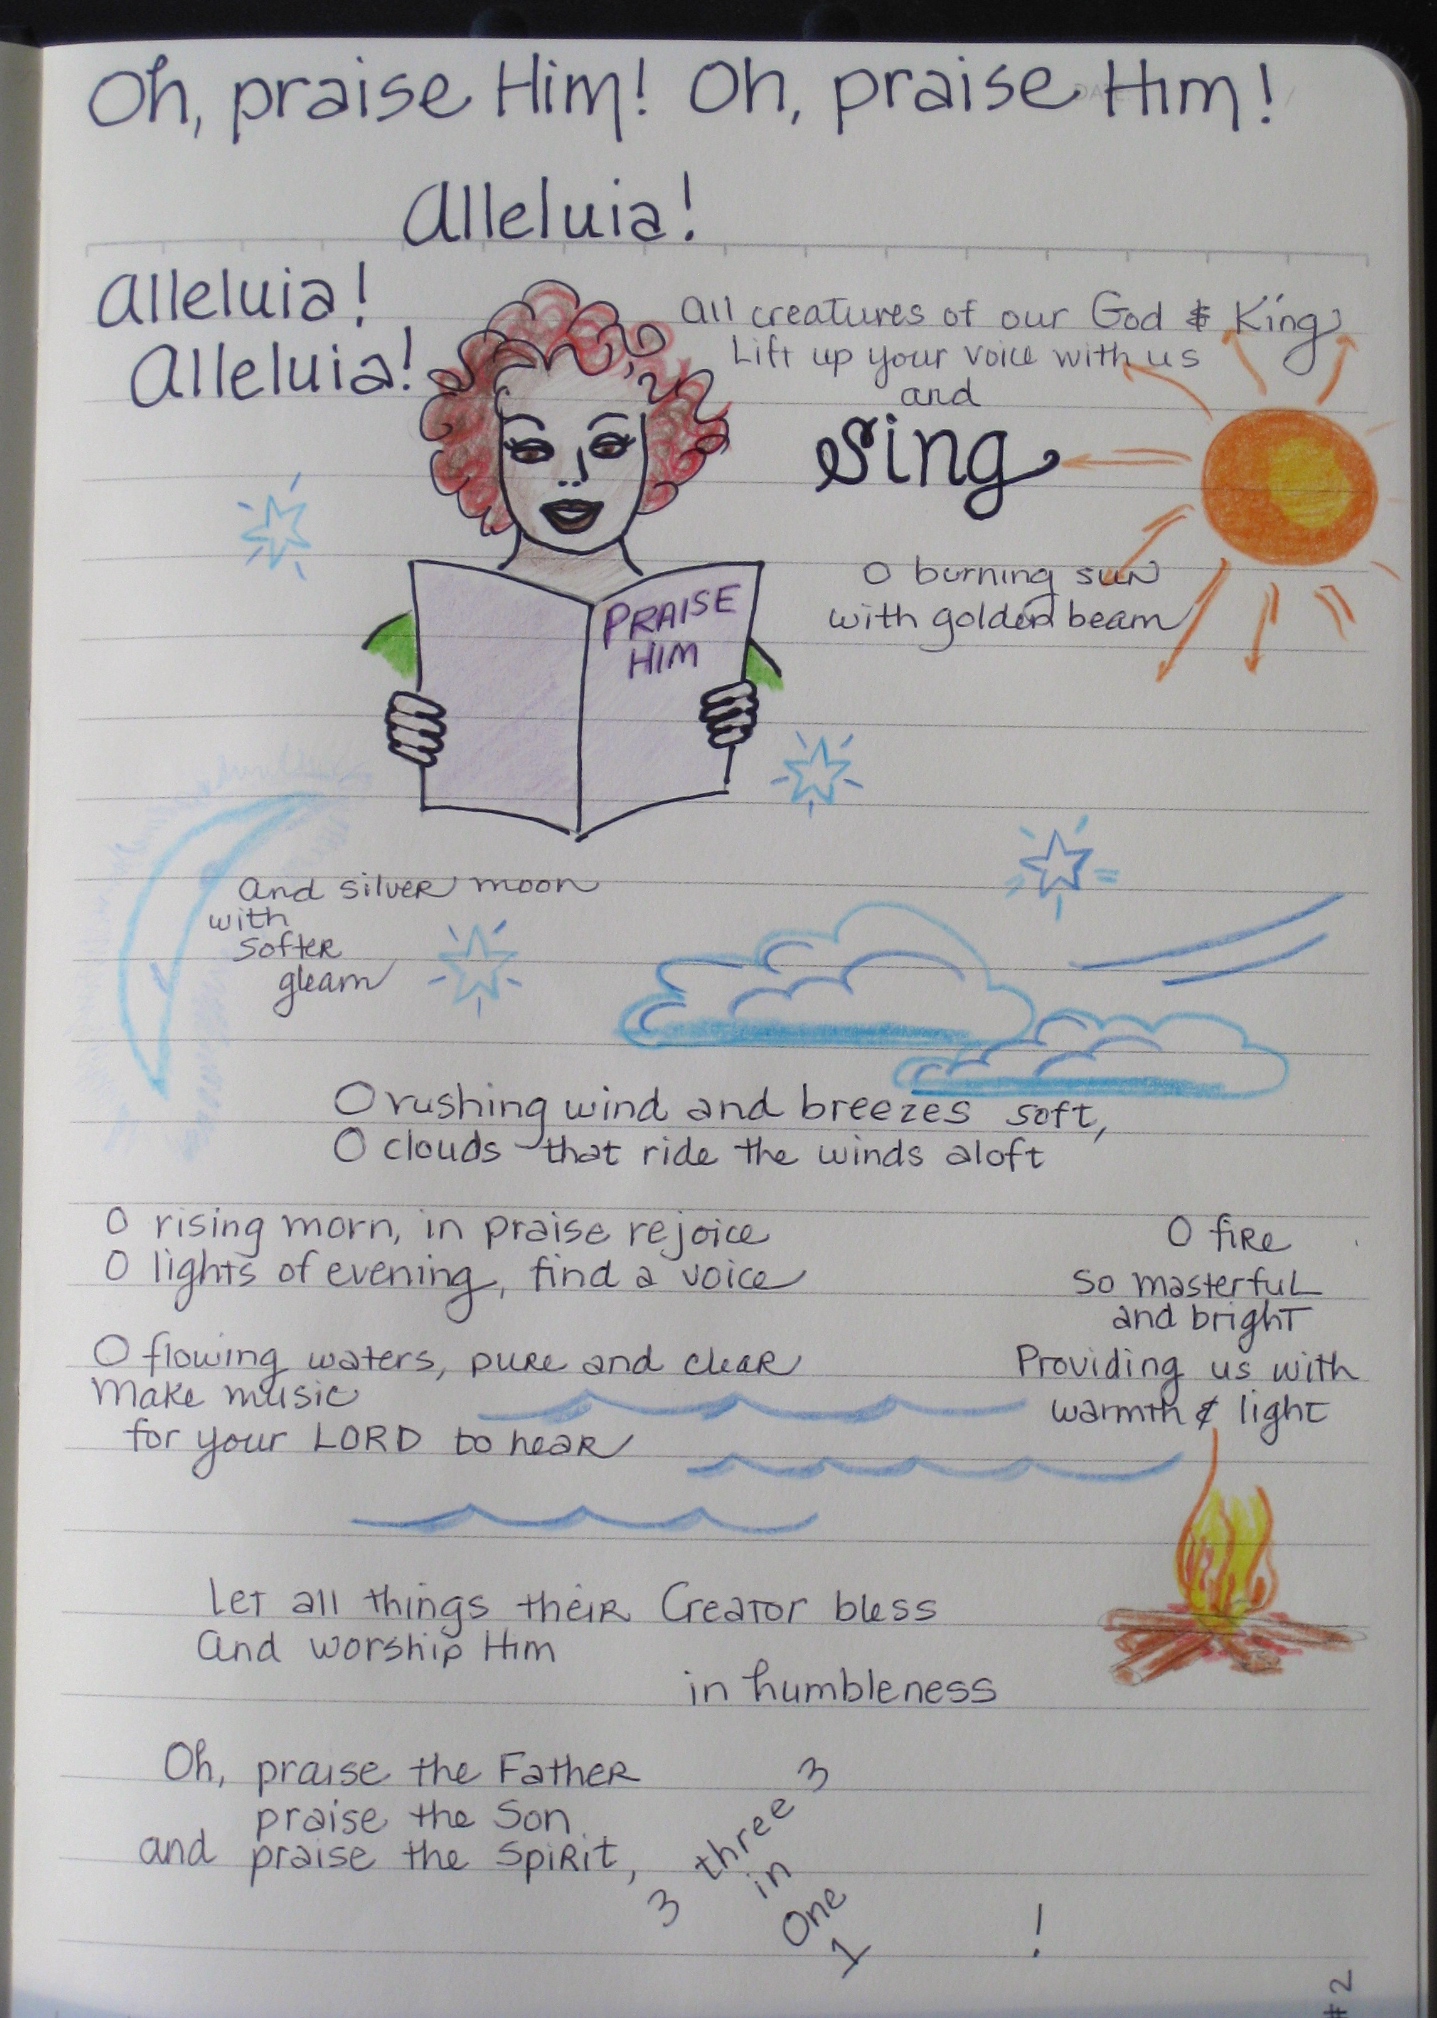 Oh, praise Him! Oh, praise Him!
Alleluia!
Alleluia!
Alleluia!
All creatures of our God & King
Lift up your voice with us
and
Sing
O burning sun
with golden beam
PRAISE
HIM
And silver moon
with
softer
gleam
O rushing wind and breezes soft,
O clouds that ride the winds aloft
O rising morn, in praise rejoice
O lights of evening, find a voice
O flowing waters, pure and clear
Make music
for your LORD to hear
O fire
so masterful
and bright
Providing us with
warmth & light
Let all things their Creator bless
And worship Him
in humbleness
Oh, praise the Father
praise the Son
and praise the Spirit,
3 three 3
in
One
1
!
#2